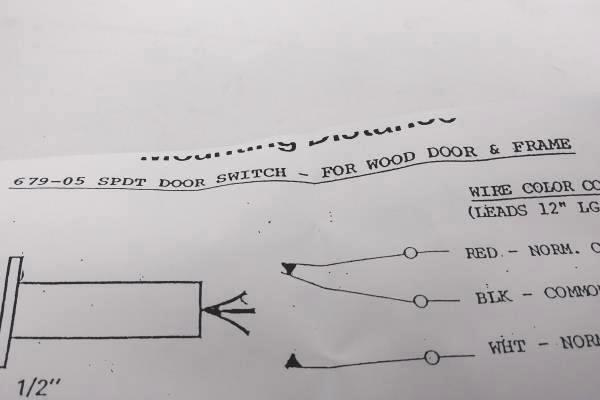 Mounting Distance
679-05 SPDT DOOR SWITCH - FOR WOOD DOOR & FRAME
WIRE COLOR CO
(LEADS 12" LG
RED - NORM. C
BLK - COMMO
WHT - NOR
1/2"